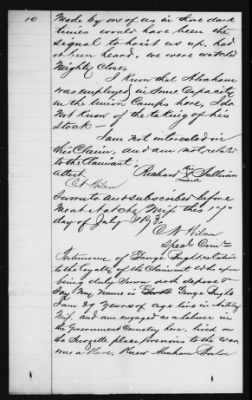 10
Made by one of us in those dark
times would have been the
signal to hoist us up, had
it been heard, we were watched
Mighty Close,
I know that Abraham
was employed in Some Capacity
in the Union Camps here, I do
Not Know of the taking of his
Stock —
I am not interested in
this Claim, and am not related
to the Claimant.
Attest Richard X Sullivan
mark
Sworn to and subscribed before
me at Natchez Miss this
day of July 1873
Spec'l Com
Testimony of George Fright relative
to the Loyalty of the Claimant who upon
being duly Sworn doth depose &
Say My Name is George Fright
I am 29 years of age live in
Miss. and am engaged as a laborer in
the Government Cemetery here, lived on
the place previous to the war
was a Slave, Knew Abraham